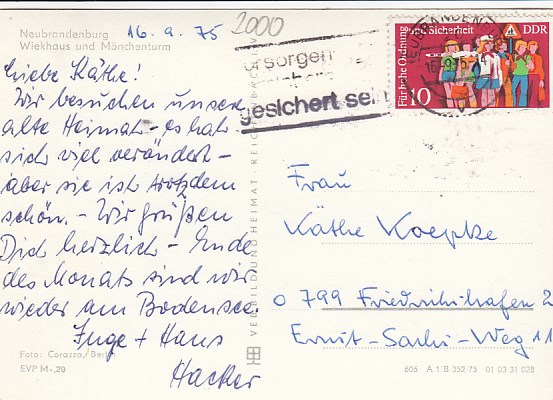 Neubrandenburg
Wiekhaus und Mönchenturm
16.9.75
2000
Liebe Käthe!
Wir besuchen unsere
alte Heimat - es hat
sich viel verändert -
aber sie ist trotzdem
schön. - Wir grüßen
Dich herzlich - Ende
des Monats sind wir
wieder am Bodensee.
Inge + Hans
Hacker
Foto: Corazza/Berlin
EVP M -,20
VERLAG BILD UND HEIMAT REICHENBACH
orsorgen
gesichert sein
Für hohe Ordnung und Sicherheit
DDR
10
Frau
Käthe Koepke
0 799 Friedrichshafen 2
Ernst-Sachs-Weg 11
606 A 1 B 352 75 01 03 31 028